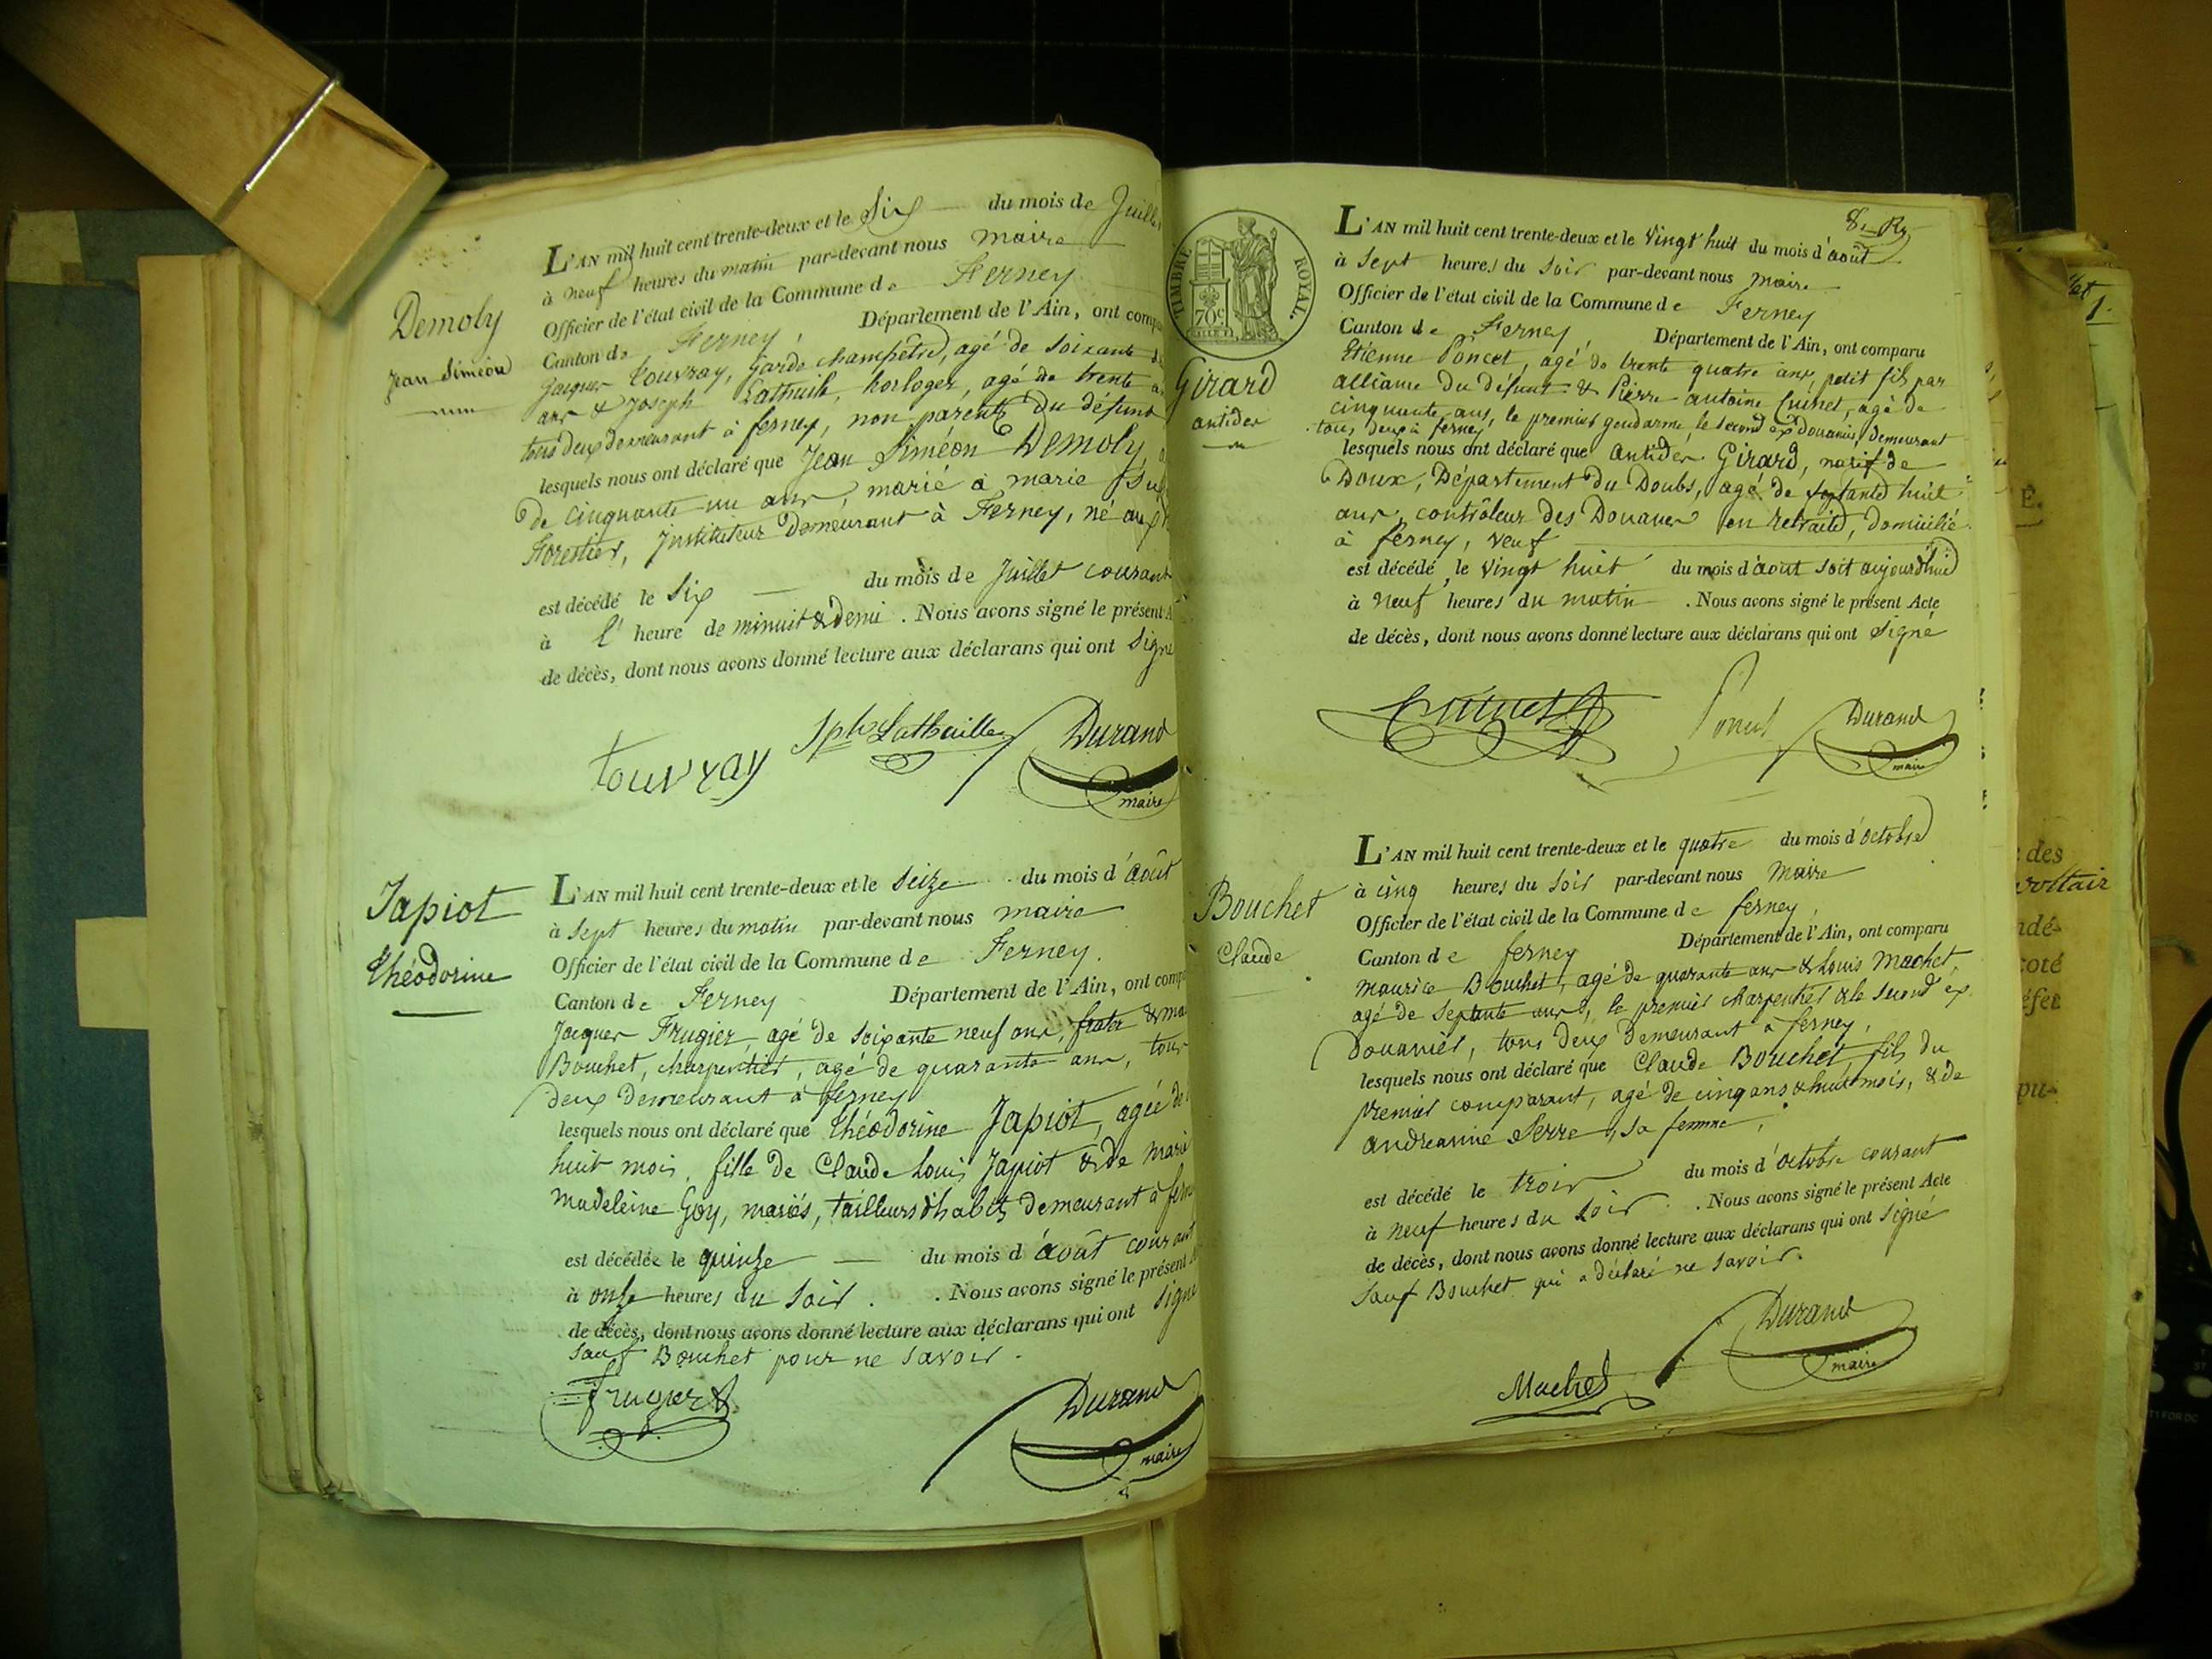 L'AN mil huit cent trente-deux et le Six du mois de Juillet
à neuf heures du matin par-devant nous maire
Officier de l'état civil de la Commune de Ferney
Canton de Ferney, Département de l'Ain, ont comp
Demoly
Jean Siméon
Jacques Touvray, garde champêtre, agé de soixante
ans & Joseph Lathuile, horloger, agé de trente
tous deux demeurant à ferney, non parents du défunt
lesquels nous ont déclaré que Jean Siméon Demoly,
de cinquante un ans, marié à marie
Forestier, Instituteur demeurant à Ferney, né au
est décédé le Six du mois de Juillet courant
à l' heure de minuit & demi. Nous avons signé le présent A
de décès, dont nous avons donné lecture aux déclarans qui ont signé
touvray Jph Lathuille Durand
maire
Japiot
Théodorine
L'AN mil huit cent trente-deux et le Seize du mois d'Août
à Sept heures du matin par-devant nous maire
Officier de l'état civil de la Commune de Ferney.
Canton de Ferney Département de l'Ain, ont comp
Jacques Frugier, agé de soixante neuf ans, frater & ma
Bouchet, charpentier, agé de quarante ans, tous
deux demeurant à ferney
lesquels nous ont déclaré que Théodorine Japiot, agée de
huit mois, fille de Claude Louis Japiot & de Marie
Madeleine Goy, mariés, tailleurs d'habits demeurant à ferney
est décédée le quinze du mois d'Août courant
à onze heures du Soir. Nous avons signé le présent A
de décès, dont nous avons donné lecture aux déclarans qui ont signé
sauf Bouchet pour ne savoir.
Frugier Durand
maire
8.
TIMBRE ROYAL.
70c
L'AN mil huit cent trente-deux et le Vingt huit du mois d'août
à Sept heures du Soir par-devant nous maire
Officier de l'état civil de la Commune de Ferney
Canton de Ferney, Département de l'Ain, ont comparu
Girard
antider
Etienne Poncet, agé de trente quatre ans, petit fils par
alliance du défunt & Pierre antoine Cuinet, agé de
cinquante ans, le premier gendarme, le second ex douanier, demeurant
tous deux à ferney
lesquels nous ont déclaré que antider Girard, natif de
Doux, Département du Doubs, agé de septante huit
ans, contrôleur des Douanes en retraite, domicilié
à ferney, veuf
est décédé, le Vingt huit du mois d'août soit aujourd'hui
à Neuf heures du matin. Nous avons signé le présent Acte
de décès, dont nous avons donné lecture aux déclarans qui ont signé
Cuinet Poncet Durand
maire
Bouchet
Claude
L'AN mil huit cent trente-deux et le quatre du mois d'octobre
à cinq heures du Soir par-devant nous maire
Officier de l'état civil de la Commune de ferney,
Canton de ferney Département de l'Ain, ont comparu
Maurice Bouchet, agé de quarante ans & Louis Machet,
agé de Septante ans, le premier charpentier & le second ex
Douanier, tous deux demeurant à ferney,
lesquels nous ont déclaré que Claude Bouchet, fils du
premier comparant, agé de cinq ans & huit mois, & de
andreanne Serre, sa femme,
est décédé le trois du mois d'octobre courant
à Neuf heures du Soir. Nous avons signé le présent Acte
de décès, dont nous avons donné lecture aux déclarans qui ont signé
Sauf Bouchet qui a déclaré ne savoir.
Machet Durand
maire
des
voltair
ndé-
coté
éfet
pu-